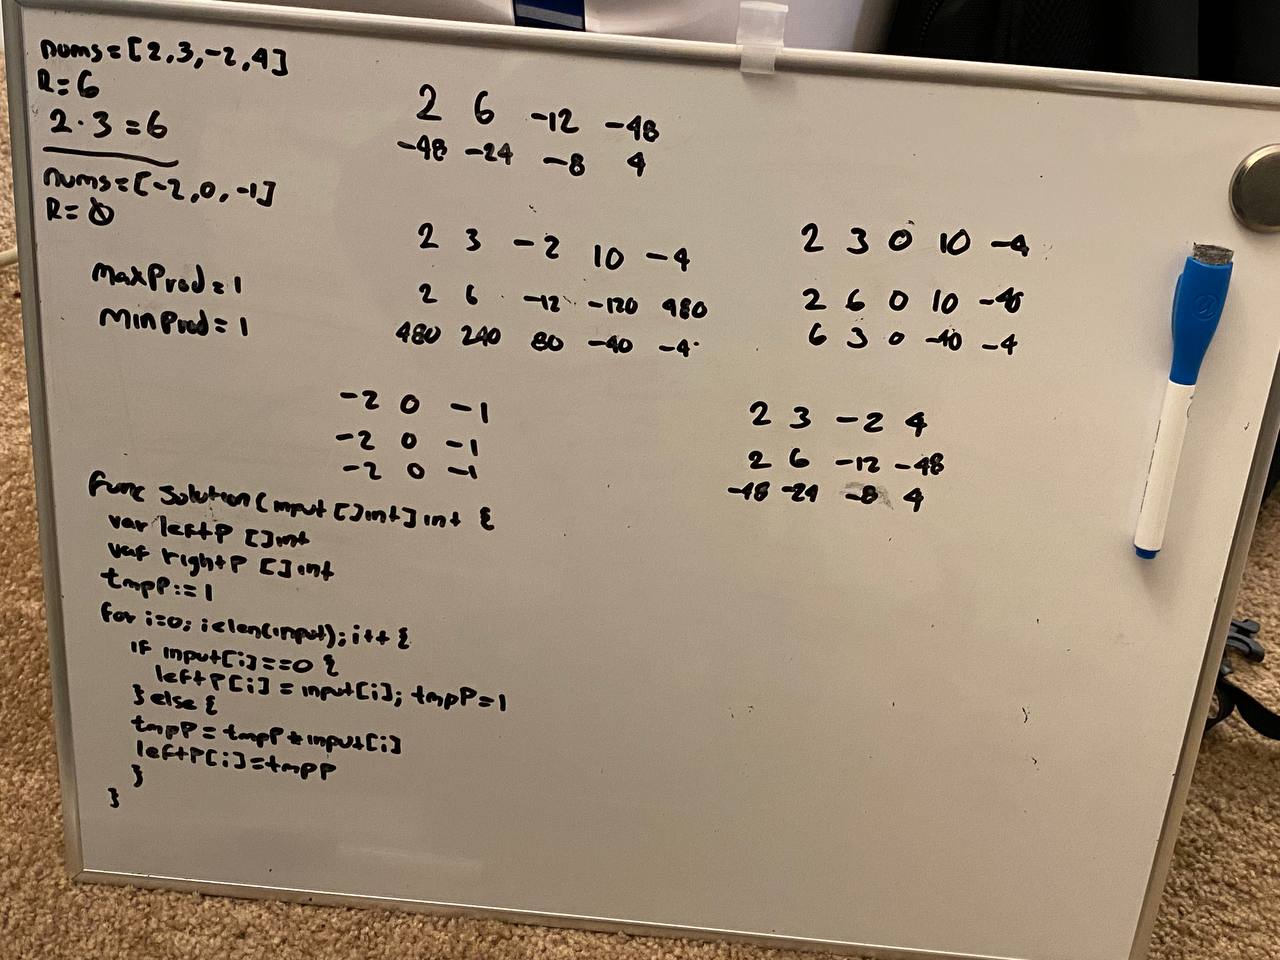 nums=[2,3,-2,4]
R=6
2·3=6
nums=[-2,0,-1]
R=0
maxProd=1
minProd=1
2 6 -12 -48
-48 -24 -8 4
2 3 -2 10 -4
2 6 -12 -120 480
480 240 80 -40 -4
2 3 0 10 -4
2 6 0 10 -40
6 3 0 -40 -4
-2 0 -1
-2 0 -1
-2 0 -1
2 3 -2 4
2 6 -12 -48
-48 -24 -8 4
func solution(input []int]int {
var leftP []int
var rightP []int
tmpP:=1
for i=0; i<len(input); i++ {
if input[i]==0 {
leftP[i]=input[i]; tmpP=1
} else {
tmpP=tmpP*input[i]
leftP[i]=tmpP
}
}